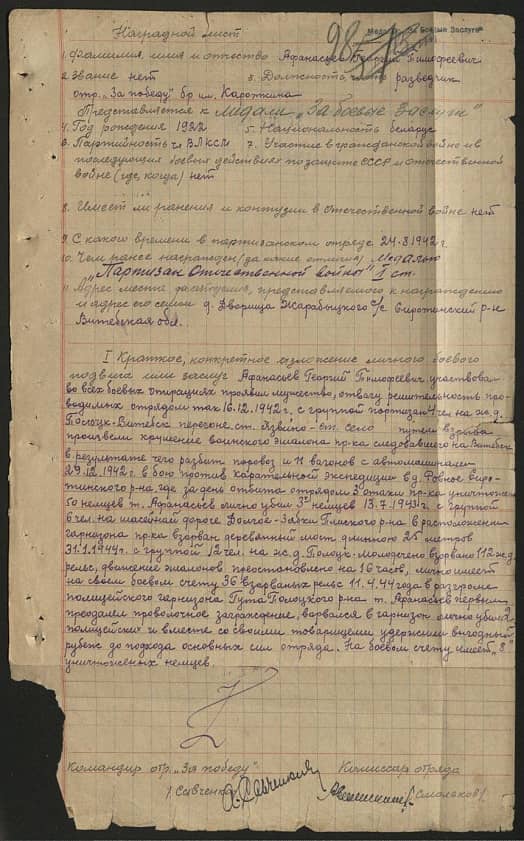 Наградной лист
Медаль За Боевые Заслуги
1. Фамилия, имя и отчество Афанасьев Георгий Тимофеевич
2. Звание нет 3. Должность разведчик
отр. "За победу" бр им. Короткина
Представляется к медали "За боевые заслуги"
4. Год рождения 1922 5. Национальность беларус
6. Партийность чл ВЛКСМ 7. Участие в гражданской войне и в
последующих боевых действиях по защите СССР и отечественной
войне (где, когда) нет
8. Имеет ли ранения и контузии в отечественной войне нет
9. С какого времени в партизанском отряде 24.8.1942 г.
10. Чем ранее награжден (за какие отличия) Медалью
"Партизан Отечественной войны" I ст.
11. Адрес места представляемого к награждению
и адрес его семьи д. Дворица Жарабыцкого с/с Сиротинский р-н
Витебская обл.
I. Краткое, конкретное изложение личного боевого
подвига или заслуг Афанасьев Георгий Тимофеевич участвовал
во всех боевых операциях проявил мужество, отвагу решительность про-
водимых отрядом так 16.12.1942 г. с группой партизан чел на ж.д.
Полоцк-Витебск перегоне ст. Язвино - ст. село путем взрыва
произвели крушение воинского эшалона пр-ка следовавшего на Витебск
в результате чего разбит паровоз и 11 вагонов с автомашинами
29.12.1942 г. в бою против карательной экспедиции в д. Ровное Сиро-
тинского р-на где за день отбита отрядом 3 атаки пр-ка уничтожено
50 немцев т. Афанасьев лично убил 3х немцев 13.7.1943 г. с группой
6 чел. на шасейной дороге Долгое - Зябки р-на в расположении
гарнизона пр-ка взорван деревянный мост длинною 25 метров
31.1.1944 г. с группой 12 чел. на ж.д. Полоцк-Молодечно взорвано 112 ж.д.
рельс, движение эшалонов преостановлено на 16 часов, лично имеет
на своём боевом счету 36 взорванных рельс 11.4.44 года в разгроме
полицейского гарнизона Гута Полоцкого р-на т. Афанасьев первым
преодалел проволочное заграждение, ворвался в гарнизон лично убил 2
полицейских и вместе со своими товарищами удержали выгодный
рубеж до подхода основных сил отряда. На боевом счету имеет "8"
уничтоженых немцев.
Командир отр. "За победу" Комиссар отряда
/Савченко/ /Смольков/